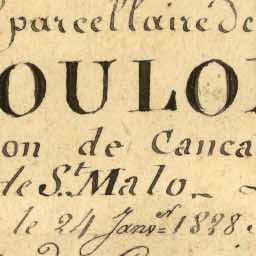 parcellaire de
OULO
on de Canca
de St. Malo_
le 24 Janer. 1828